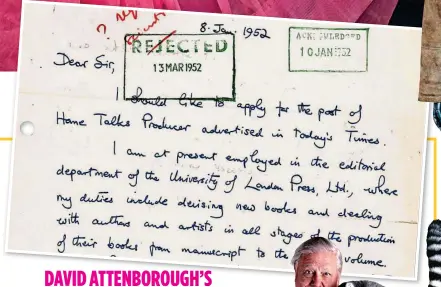 8. Jan. 1952
REJECTED
13 MAR 1952
ACKNOWLEDGED
10 JAN 1952
Dear Sir,
I should like to apply for the post of
Home Talks Producer advertised in today's Times.
I am at present employed in the editorial
department of the University of London Press, Ltd., where
my duties include devising new books and dealing
with authors and artists in all stages of the production
of their books from manuscript to the volume.
DAVID ATTENBOROUGH'S